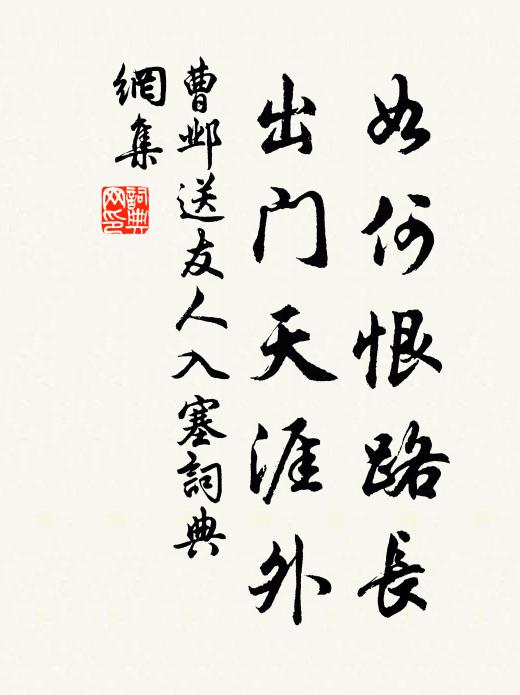 如何恨路長
出門天涯外
曹邺送友人入塞詞典
網集
詞典
网印